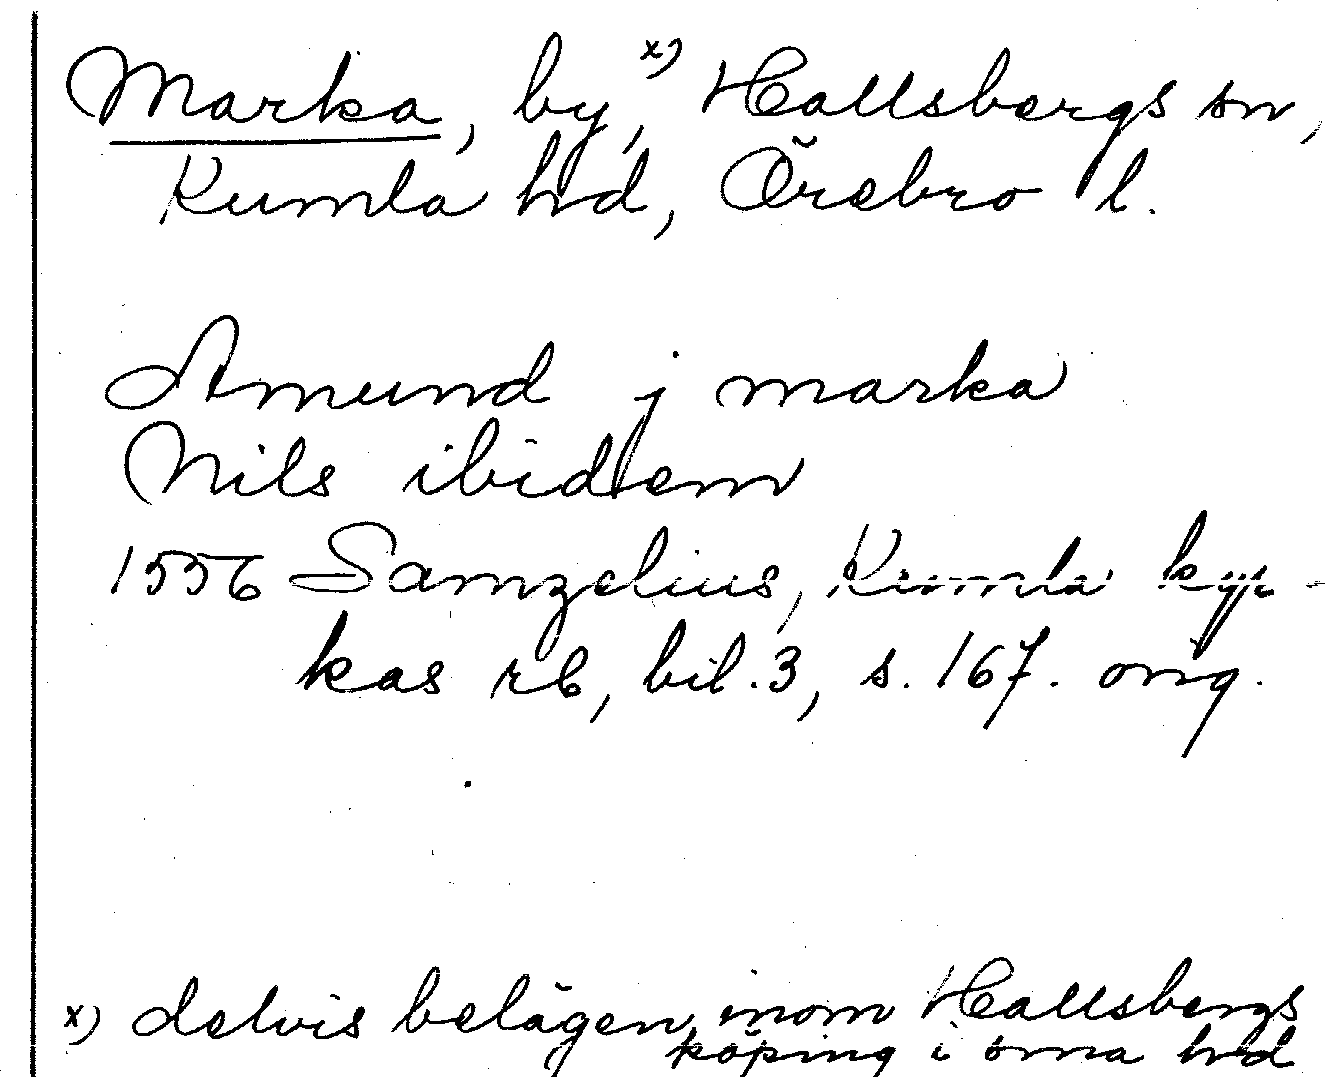 Marka, by,ˣ⁾ Hallsbergs sn,
Kumla hd, Örebro l.
Amund j marka
Nils ibidem
1556 Samzelius, Kumla kyr-
kas rb, bil. 3, s. 167. orig.
x) delvis belägen inom Hallsbergs
köping i sma hd